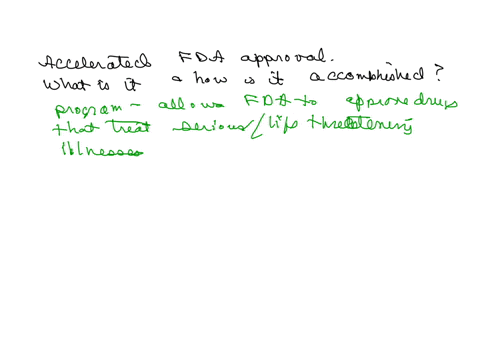 Accelerated FDA approval.
What is it & how is it accomplished?
program - allows FDA to approve drugs
that treat serious/life threatening
illnesses